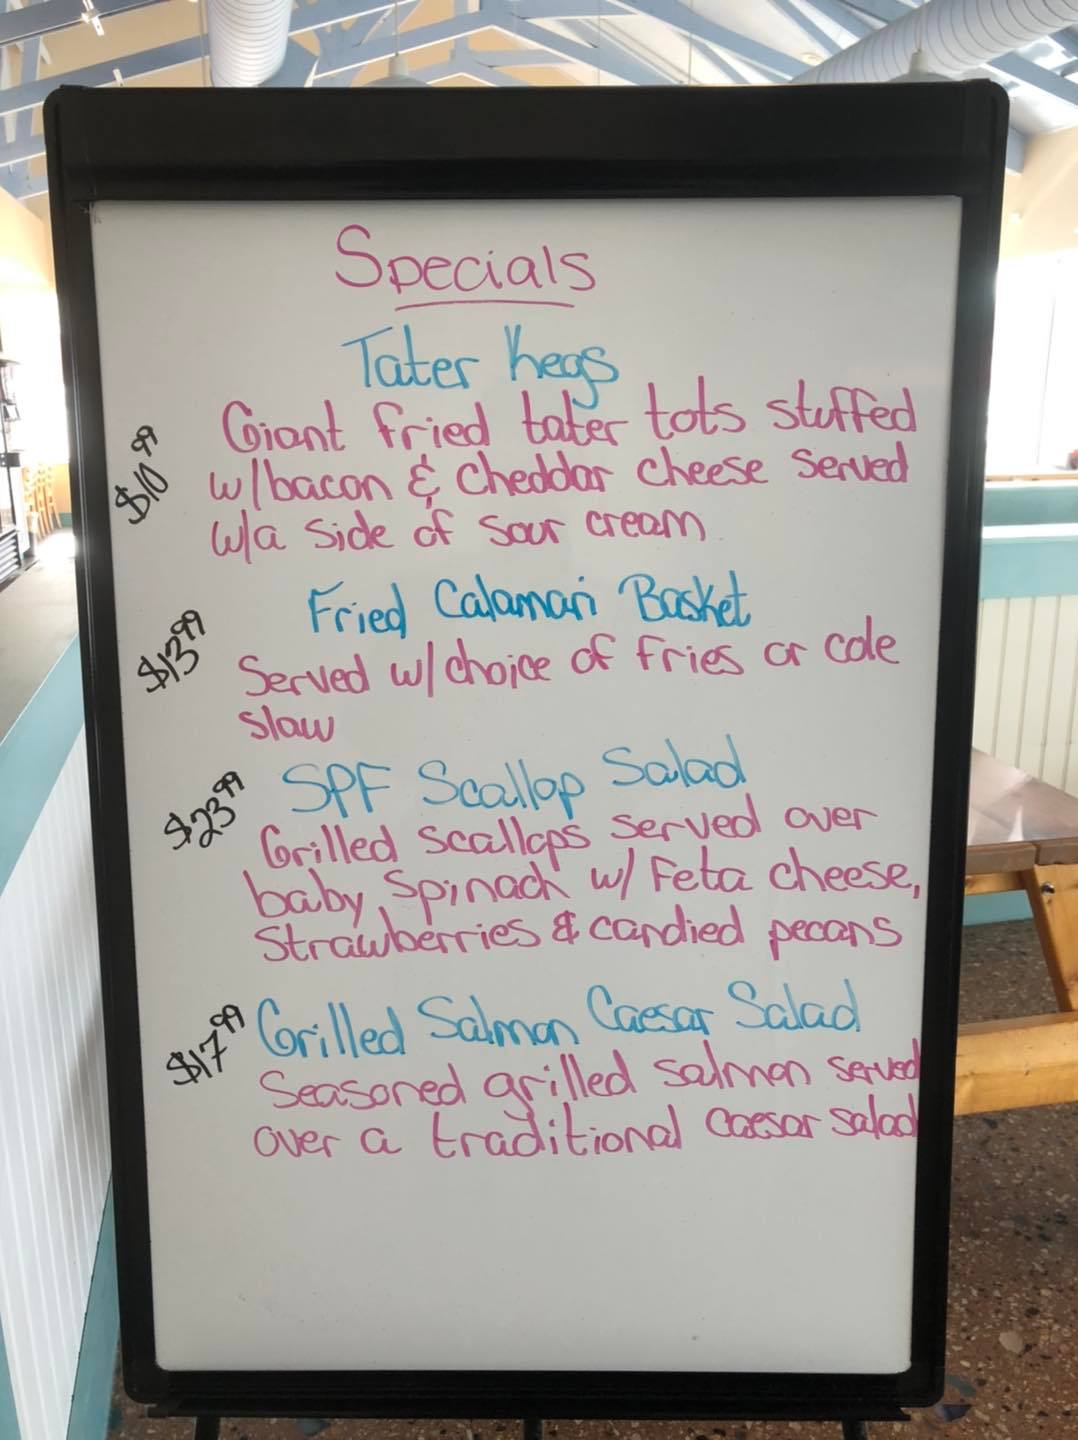 Specials
Tater Kegs
$10.99
Giant fried tater tots stuffed
w/bacon & cheddar cheese served
w/a side of sour cream
Fried Calamari Basket
$13.99
Served w/choice of fries or cole
slaw
SPF Scallop Salad
$23.99
Grilled scallops served over
baby spinach w/ Feta cheese,
Strawberries & candied pecans
Grilled Salmon Caesar Salad
$17.99
Seasoned grilled salmon served
over a traditional caesar salad